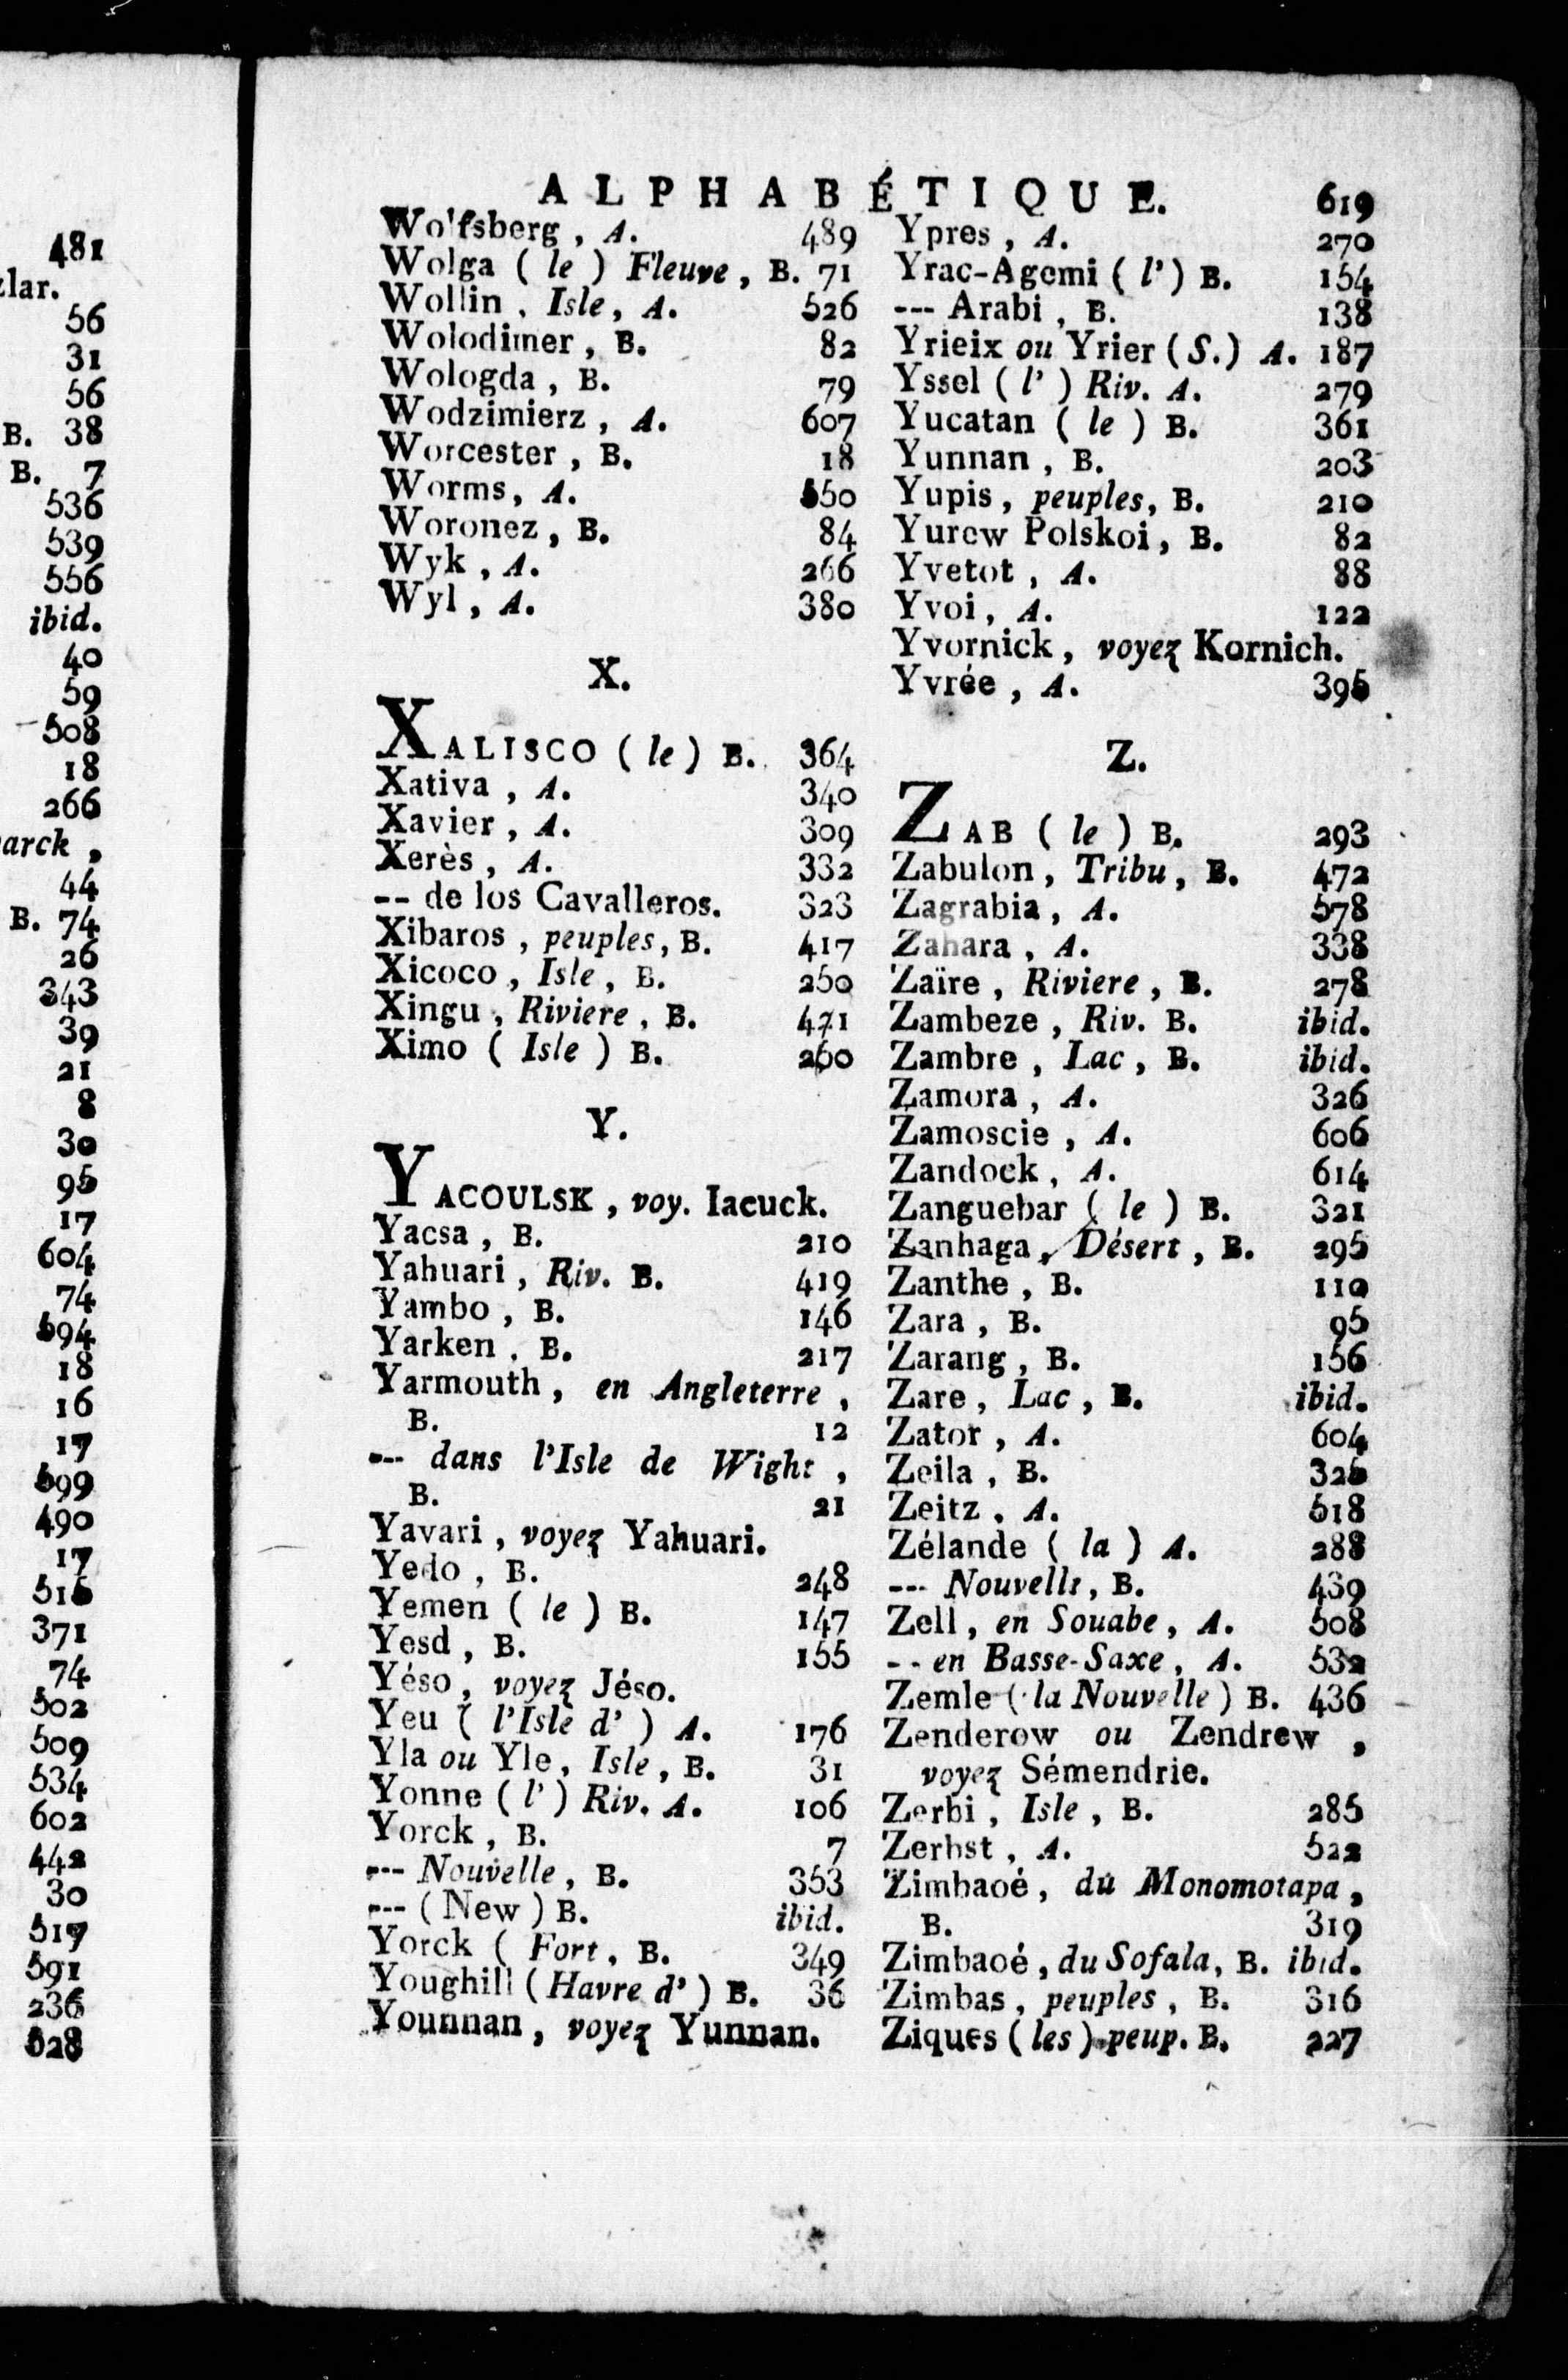 481
zlar.
56
31
56
B. 38
B. 7
536
539
556
ibid.
40
59
508
18
266
arck ,
44
B. 74
26
343
39
21
8
30
95
17
604
74
594
18
16
17
599
490
17
515
371
74
502
509
534
602
442
30
517
591
236
528
ALPHABÉTIQUE. 619
Wolfsberg, A. 489
Wolga ( le ) Fleuve, B. 71
Wollin, Isle, A. 526
Wolodimer, B. 82
Wologda, B. 79
Wodzimierz, A. 607
Worcester, B. 18
Worms, A. 550
Woronez, B. 84
Wyk, A. 266
Wyl, A. 380
X.
XALISCO ( le ) B. 364
Xativa, A. 340
Xavier, A. 309
Xerès, A. 332
-- de los Cavalleros. 323
Xibaros, peuples, B. 417
Xicoco, Isle, B. 250
Xingu, Riviere, B. 421
Ximo ( Isle ) B. 260
Y.
YACOULSK, voy. Iacuck.
Yacsa, B. 210
Yahuari, Riv. B. 419
Yambo, B. 146
Yarken, B. 217
Yarmouth, en Angleterre,
B. 12
--- dans l'Isle de Wight,
B. 21
Yavari, voyez Yahuari.
Yedo, B. 248
Yemen ( le ) B. 147
Yesd, B. 155
Yéso, voyez Jéso.
Yeu ( l'Isle d' ) A. 176
Yla ou Yle, Isle, B. 31
Yonne ( l' ) Riv. A. 106
Yorck, B. 7
--- Nouvelle, B. 353
--- ( New ) B. ibid.
Yorck ( Fort, B. 349
Youghill ( Havre d' ) B. 36
Younnan, voyez Yunnan.
Ypres, A. 270
Yrac-Agemi ( l' ) B. 154
--- Arabi, B. 138
Yrieix ou Yrier ( S. ) A. 187
Yssel ( l' ) Riv. A. 279
Yucatan ( le ) B. 361
Yunnan, B. 203
Yupis, peuples, B. 210
Yurew Polskoi, B. 82
Yvetot, A. 88
Yvoi, A. 122
Yvornick, voyez Kornich.
Yvrée, A. 395
Z.
ZAB ( le ) B. 293
Zabulon, Tribu, B. 472
Zagrabia, A. 578
Zahara, A. 338
Zaïre, Riviere, B. 278
Zambeze, Riv. B. ibid.
Zambre, Lac, B. ibid.
Zamora, A. 326
Zamoscie, A. 606
Zandock, A. 614
Zanguebar ( le ) B. 321
Zanhaga, Désert, B. 295
Zanthe, B. 110
Zara, B. 95
Zarang, B. 156
Zare, Lac, B. ibid.
Zator, A. 604
Zeila, B. 325
Zeitz, A. 518
Zélande ( la ) A. 288
--- Nouvelle, B. 439
Zell, en Souabe, A. 508
-- en Basse-Saxe, A. 532
Zemle ( la Nouvelle ) B. 436
Zenderow ou Zendrew,
voyez Sémendrie.
Zerbi, Isle, B. 285
Zerbst, A. 522
Zimbaoé, du Monomotapa,
B. 319
Zimbaoé, du Sofala, B. ibid.
Zimbas, peuples, B. 316
Ziques ( les ) peup. B. 227